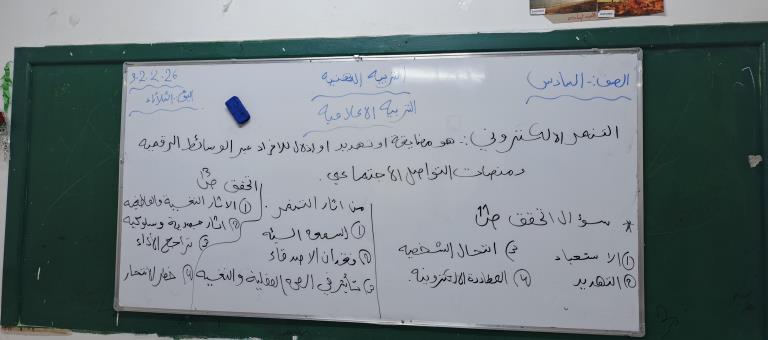 الصف:- السادس
التربية المهنية
3.2.2.26
التربية الاعلامية
اليوم: الثلاثاء
التنمر الالكتروني:. هو مضايقة او تهديد او اذلال للافراد عبر الوسائط الرقمية
ومنصات التواصل الاجتماعي.
* سؤال اتحقق ص
① الاستبعاد
② التهديد
③ انتحال الشخصية
④ المطاردة الالكترونية.
من اثار التنمر.
① السمعة السيئة
② فقدان الاصدقاء
③ تأثير في الصحة العقلية والنفسية
اتحقق ص
① الاثار النفسية والعاطفية
② اثار جسدية وسلوكية
③ تراجع الأداء
④ خطر الانتحار